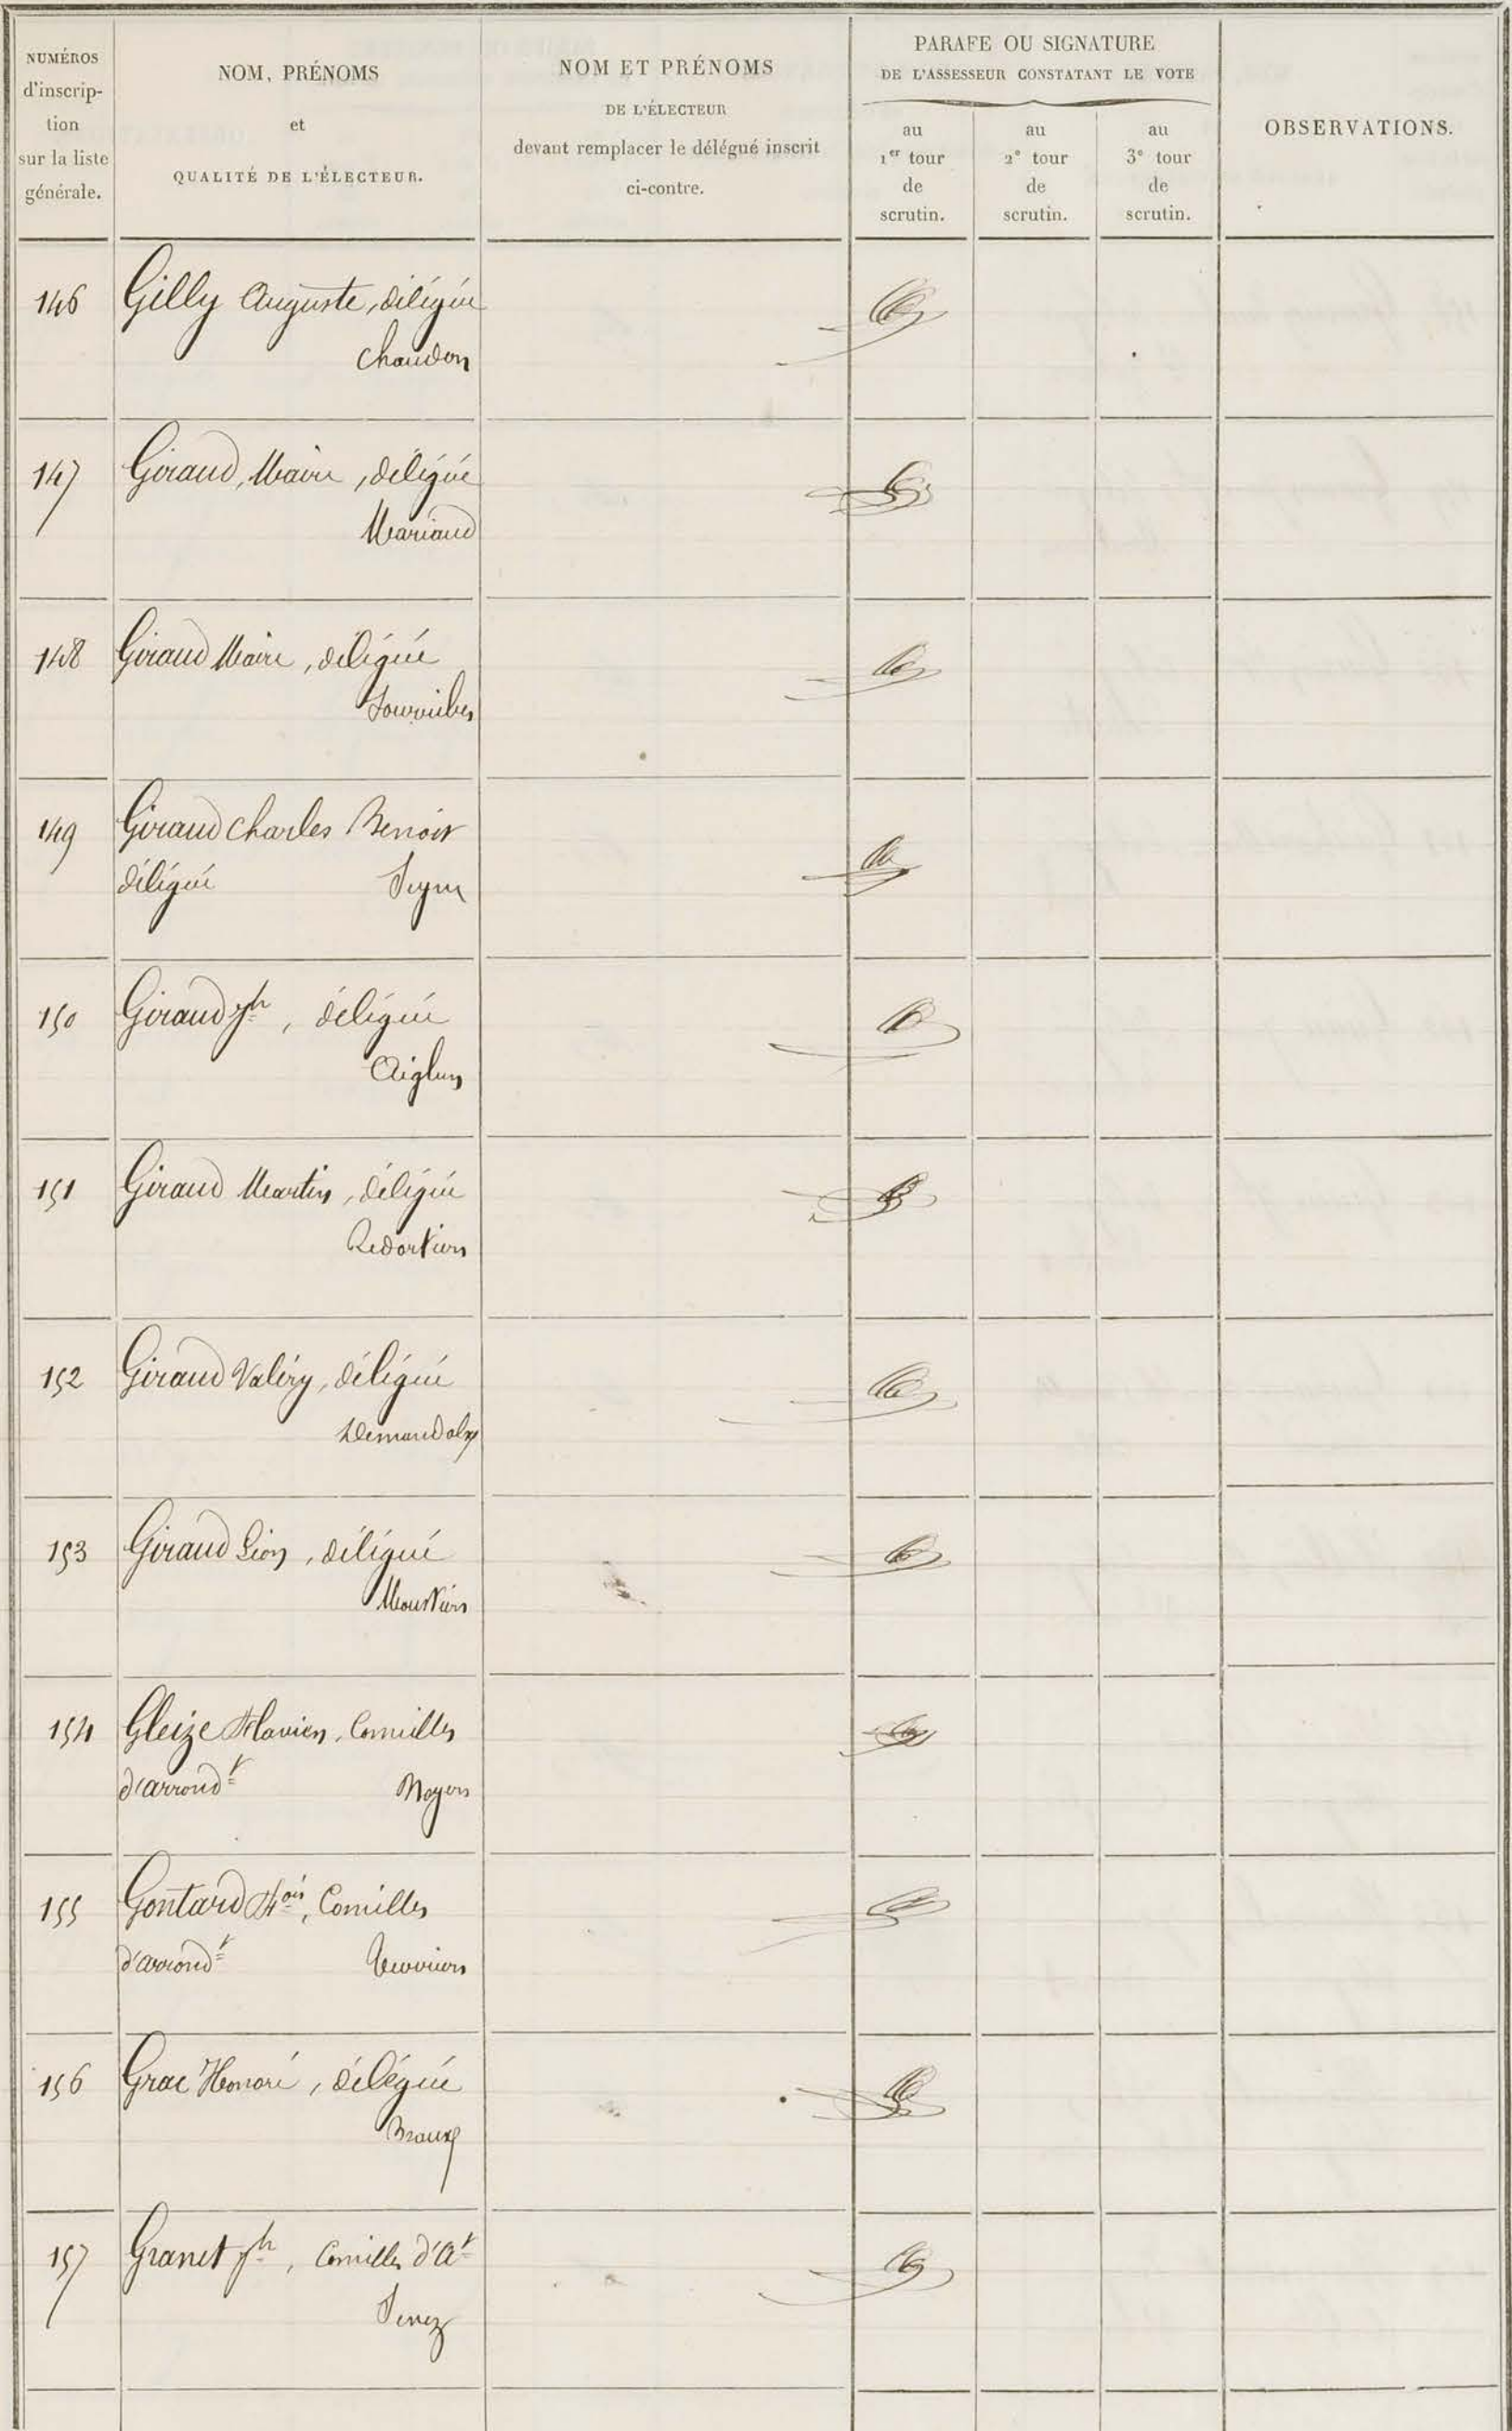 NUMÉROS
d'inscrip-
tion
sur la liste
générale.
NOM, PRÉNOMS
et
QUALITÉ DE L'ÉLECTEUR.
NOM ET PRÉNOMS
DE L'ÉLECTEUR
devant remplacer le délégué inscrit
ci-contre.
PARAFE OU SIGNATURE
DE L'ASSESSEUR CONSTATANT LE VOTE
au
1er tour
de
scrutin.
au
2e tour
de
scrutin.
au
3e tour
de
scrutin.
OBSERVATIONS.
146 Gilly Auguste, délégué
Chaudon
147 Giraud, Maire, délégué
Mariaud
148 Giraud Maire, délégué
Sourribes
149 Giraud Charles Benoit
délégué Seyne
150 Giraud Jh, délégué
Aiglun
151 Giraud Martin, délégué
Redortiers
152 Giraud Valéry, délégué
Demandolx
153 Giraud Léon, délégué
Moustiers
154 Gleize Flavien, Conseiller
d'arrondt Noyers
155 Gontard Fois, Conseiller
d'arrondt
156 Grac Honoré, délégué
Braux
157 Granet Jh, Conseiller d'At
Senez